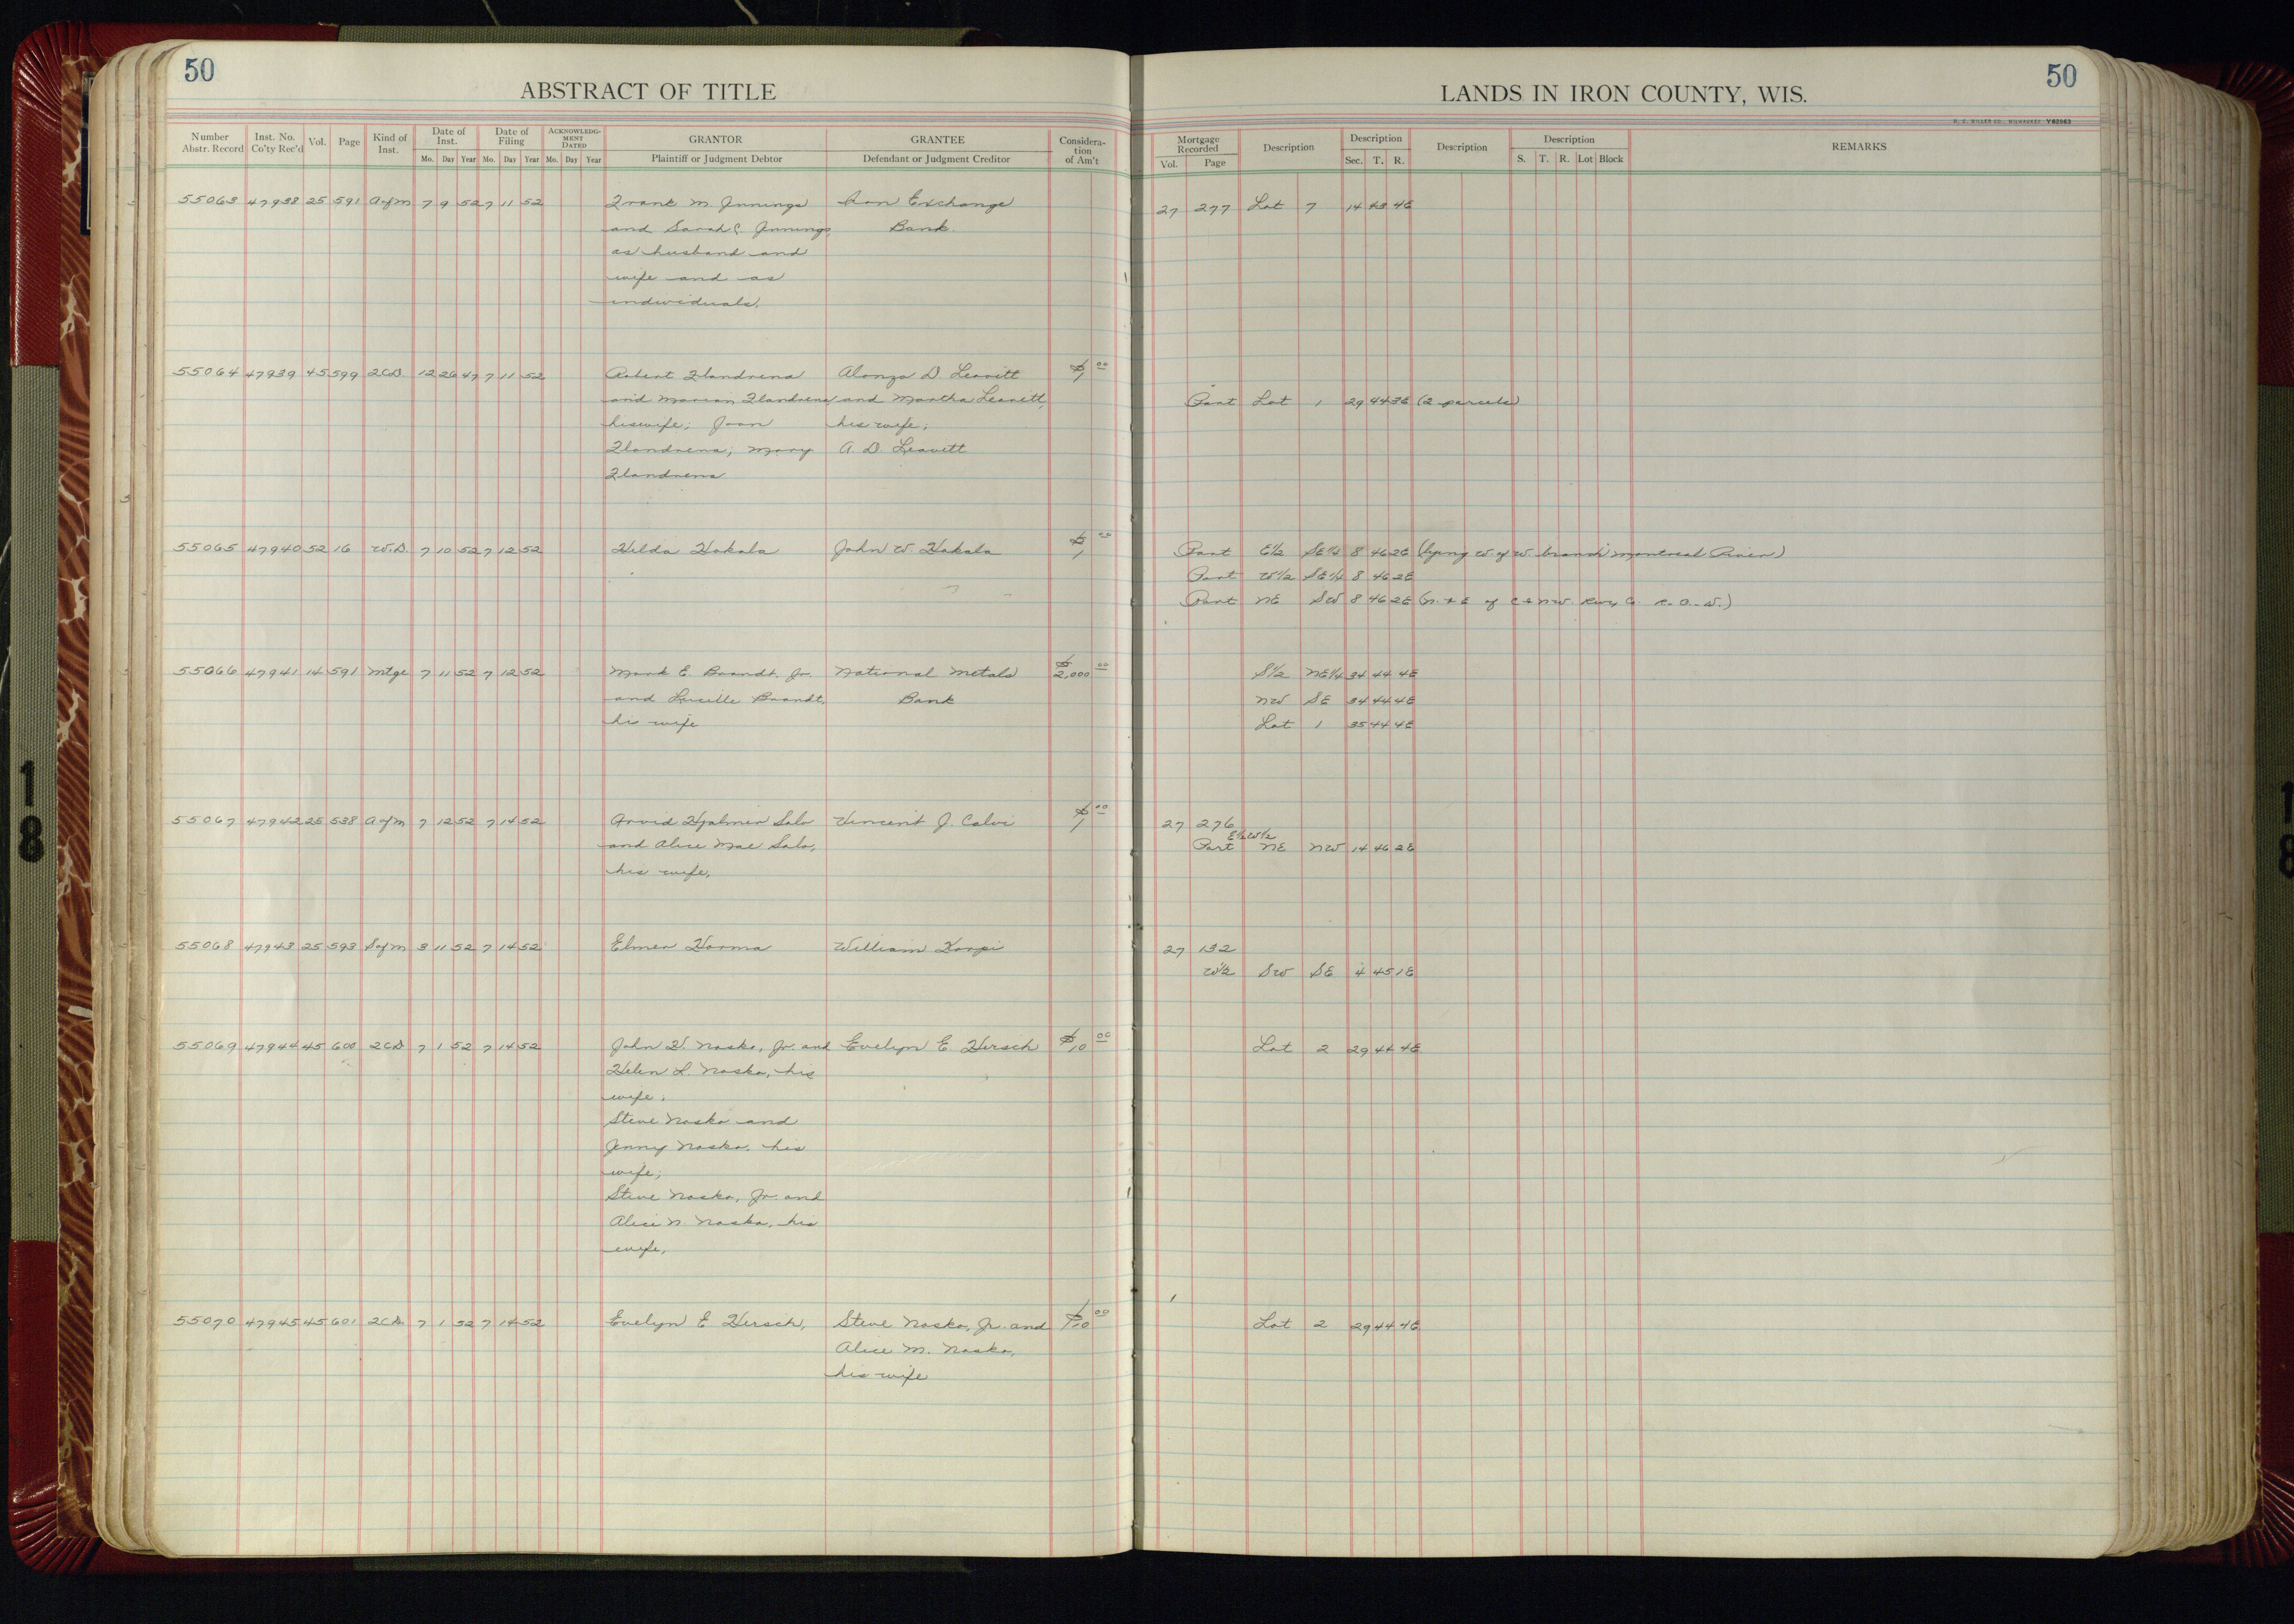 50
ABSTRACT OF TITLE
LANDS IN IRON COUNTY, WIS.
50
Number Abstr. Record | Inst. No. Co'ty Rec'd | Vol. | Page | Kind of Inst. | Date of Inst. Mo. Day Year | Date of Filing Mo. Day Year | ACKNOWLEDGMENT DATED Mo. Day Year | GRANTOR Plaintiff or Judgment Debtor | GRANTEE Defendant or Judgment Creditor | Consideration of Am't
Mortgage Recorded Vol. Page | Description | Description Sec. T. R. | Description | Description S. T. R. Lot Block | REMARKS
55063 47938 25 591 A of M 7 9 52 7 11 52 Frank M. Innings Iron Exchange 27 277 Lot 7 14 43 4E
and Sarah C Innings, Bank.
as husband and
wife and as
individuals.
55064 47939 45 599 2CD. 12 26 47 7 11 52 Robert Flandrena Alonzo D. Leavitt $1 00
and Marian Flandrena and Martha Leavitt, Part Lot 1 29 44 3E (2 parcels)
his wife; Joan his wife;
Flandrena; Mary A. D. Leavitt
Flandrena
55065 47940 52 16 W.D. 7 10 52 7 12 52 Hilda Hakala John W. Hakala $1 00 Part E½ SE¼ 8 46 2E (lying W of W. branch Montreal River)
Part W½ SE¼ 8 46 2E
Part NE SW 8 46 2E (N. & E of C & N.W. Rwy Co. R.O.W.)
55066 47941 14 591 Mtge 7 11 52 7 12 52 Mark E. Brandt, Jr. National Metals $2,000 00 S½ NE¼ 34 44 4E
and Lucille Brandt, Bank NW SE 34 44 4E
his wife Lot 1 35 44 4E
55067 47942 25 538 A of M 7 12 52 7 14 52 Arvid Hjalmer Salo Vincent J. Calvi $1 00 27 276
E½W½
and Alice Mae Salo, Part NE NW 14 46 2E
his wife,
55068 47943 25 593 S of M 3 11 52 7 14 52 Elmer Harma William Korpi 27 132
W½ SW SE 4 45 1E
55069 47944 45 600 2CD 7 1 52 7 14 52 John H. Nasko, Jr. and Evelyn E Hersch $10 00 Lot 2 29 44 4E
Helen L. Nasko, his
wife;
Steve Nasko and
Jenny Nasko, his
wife;
Steve Nasko, Jr. and
Alice N. Nasko, his
wife,
55070 47945 45 601 2CD. 7 1 52 7 14 52 Evelyn E Hersch, Steve Nasko, Jr. and $10 00 Lot 2 29 44 4E
Alice M. Nasko,
his wife
18